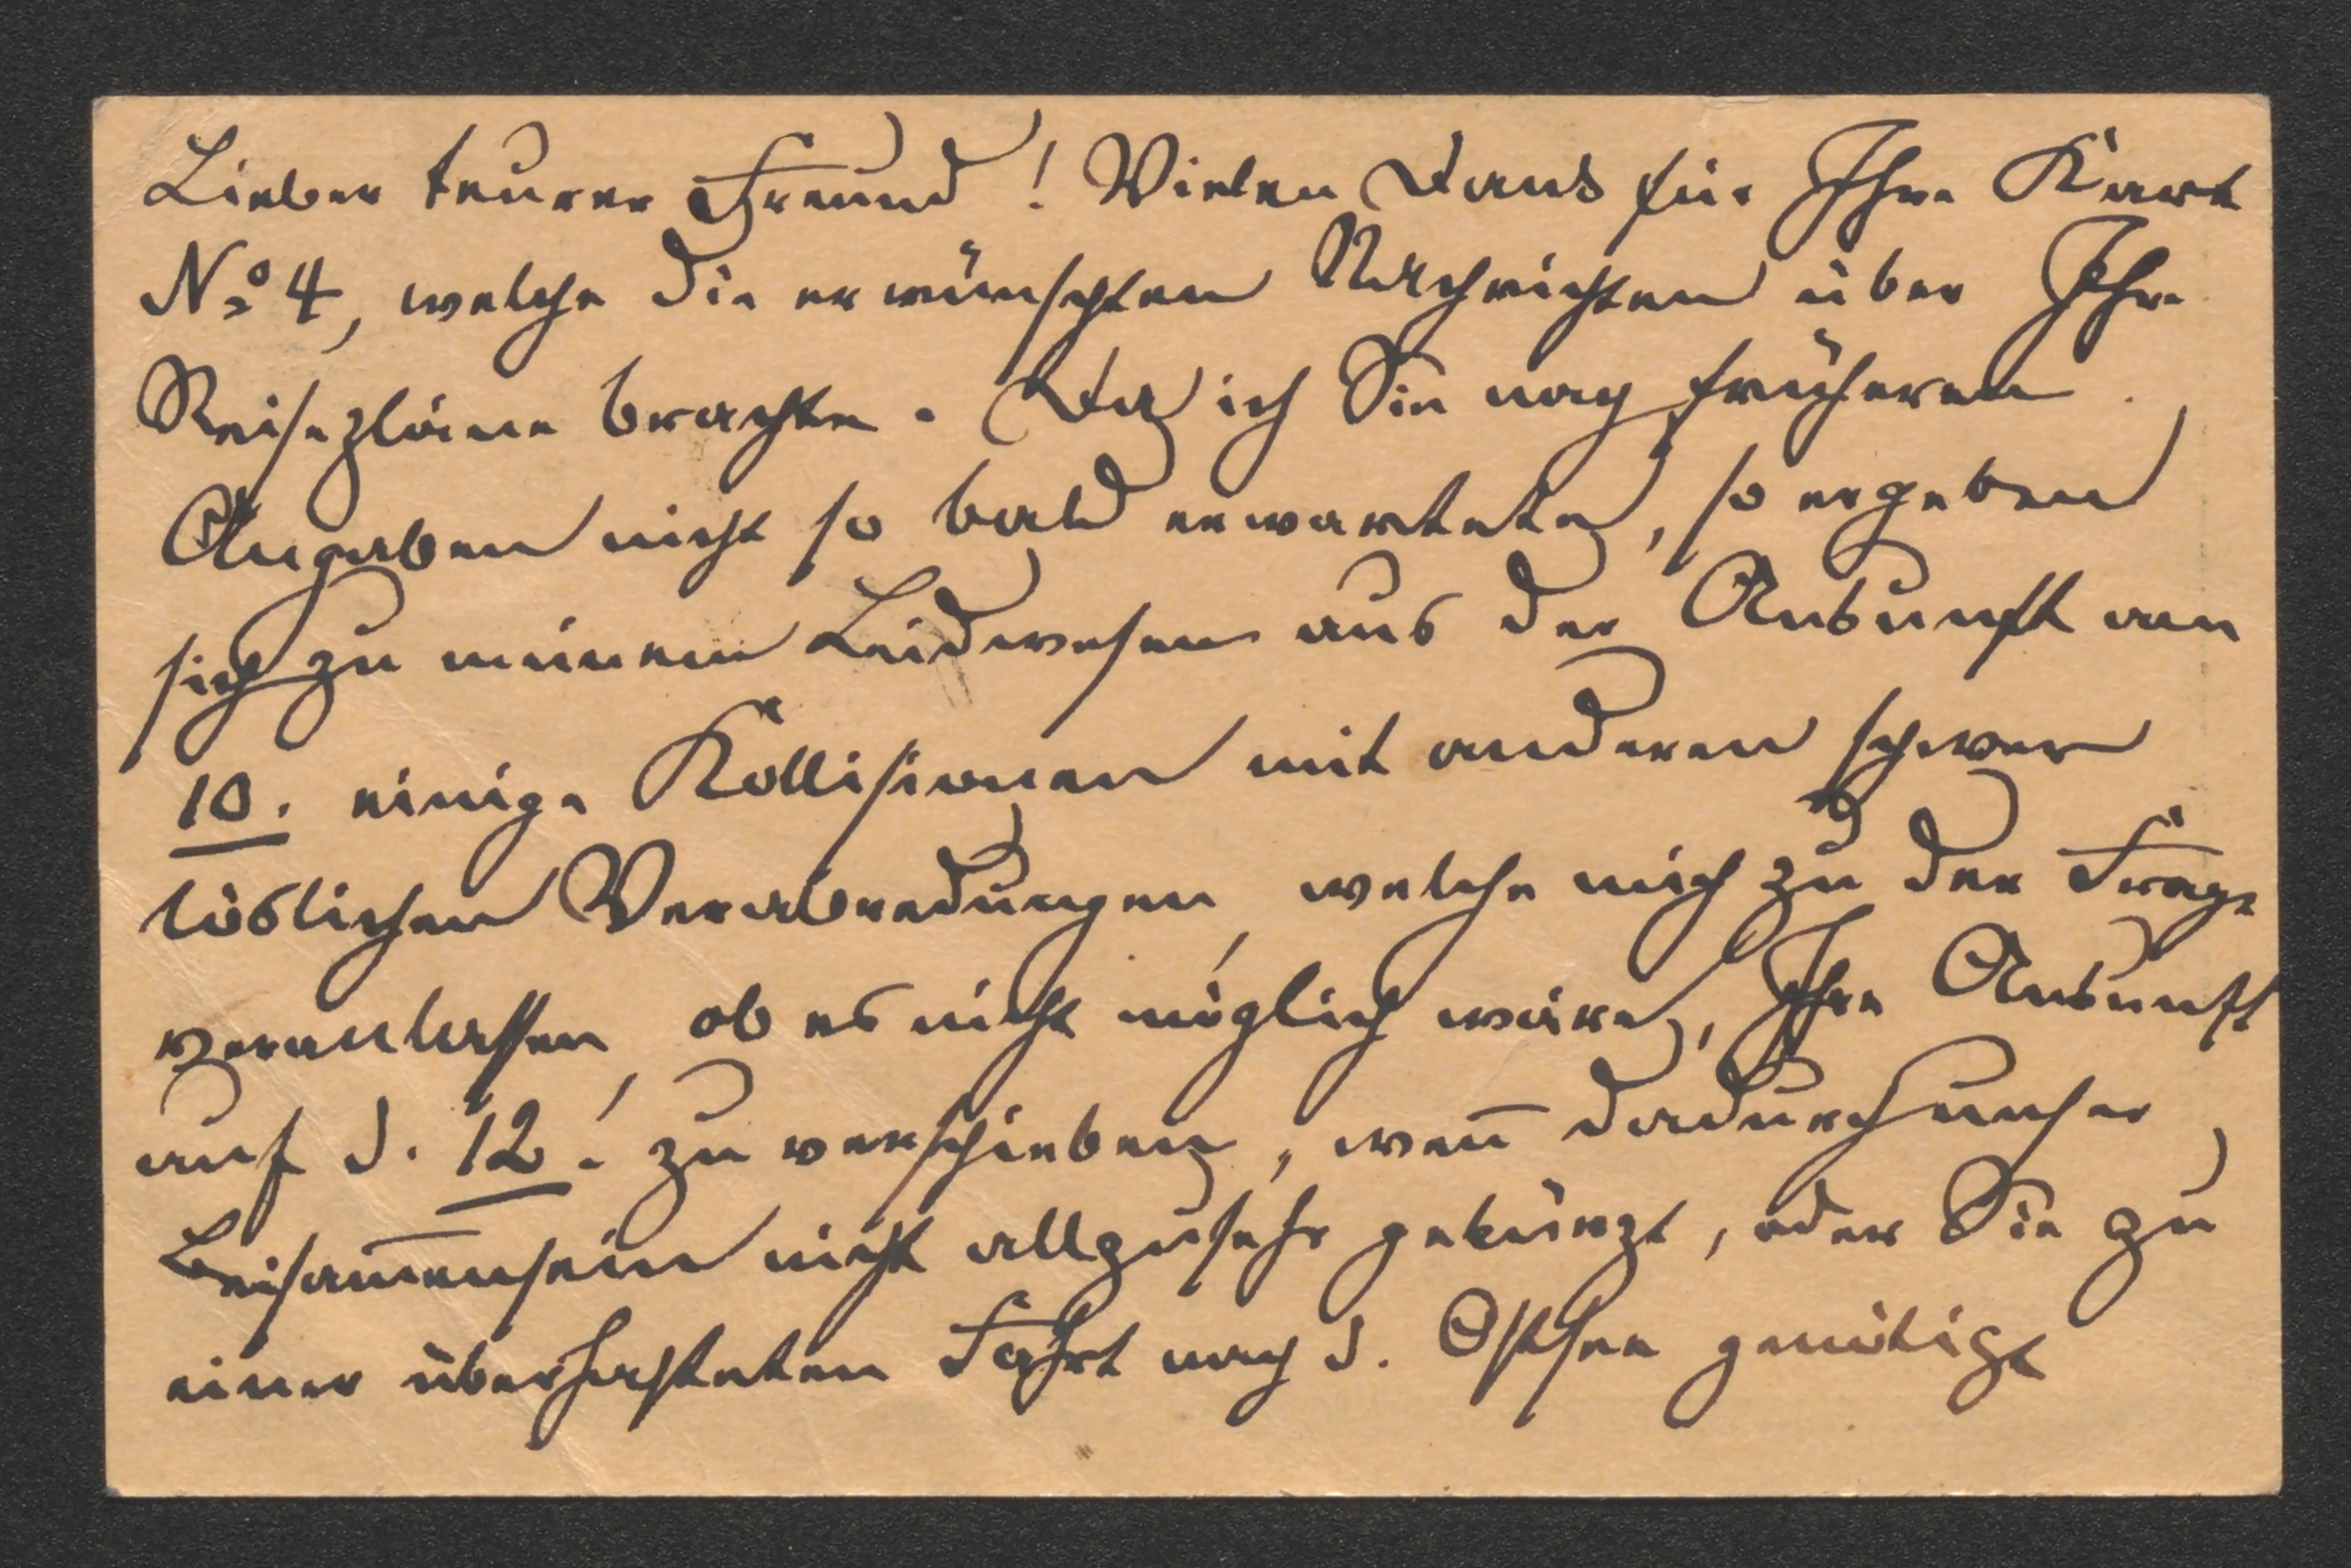 Lieber teurer Freund! Vielen Dank für Ihre Kart
No 4, welche die erwünschten Nachrichten über Ihre
Reisepläne brachte. Da ich Sie nach früheren
Angaben nicht so bald erwartete, so ergeben
sich zu meinem Leidwesen aus der Ankunft am
10. einige Kollisionen mit anderen schwer
löslichen Verabredungen, welche mich zu der Frage
veranlassen, ob es nicht möglich wäre, Ihre Ankunft
auf d. 12. zu verschieben, wen̄ dadurch unser
Beisam̄ensein nicht allzusehr gekürzt, oder Sie zu
einer überhasteten Fahrt nach d. Ostsee genötigt